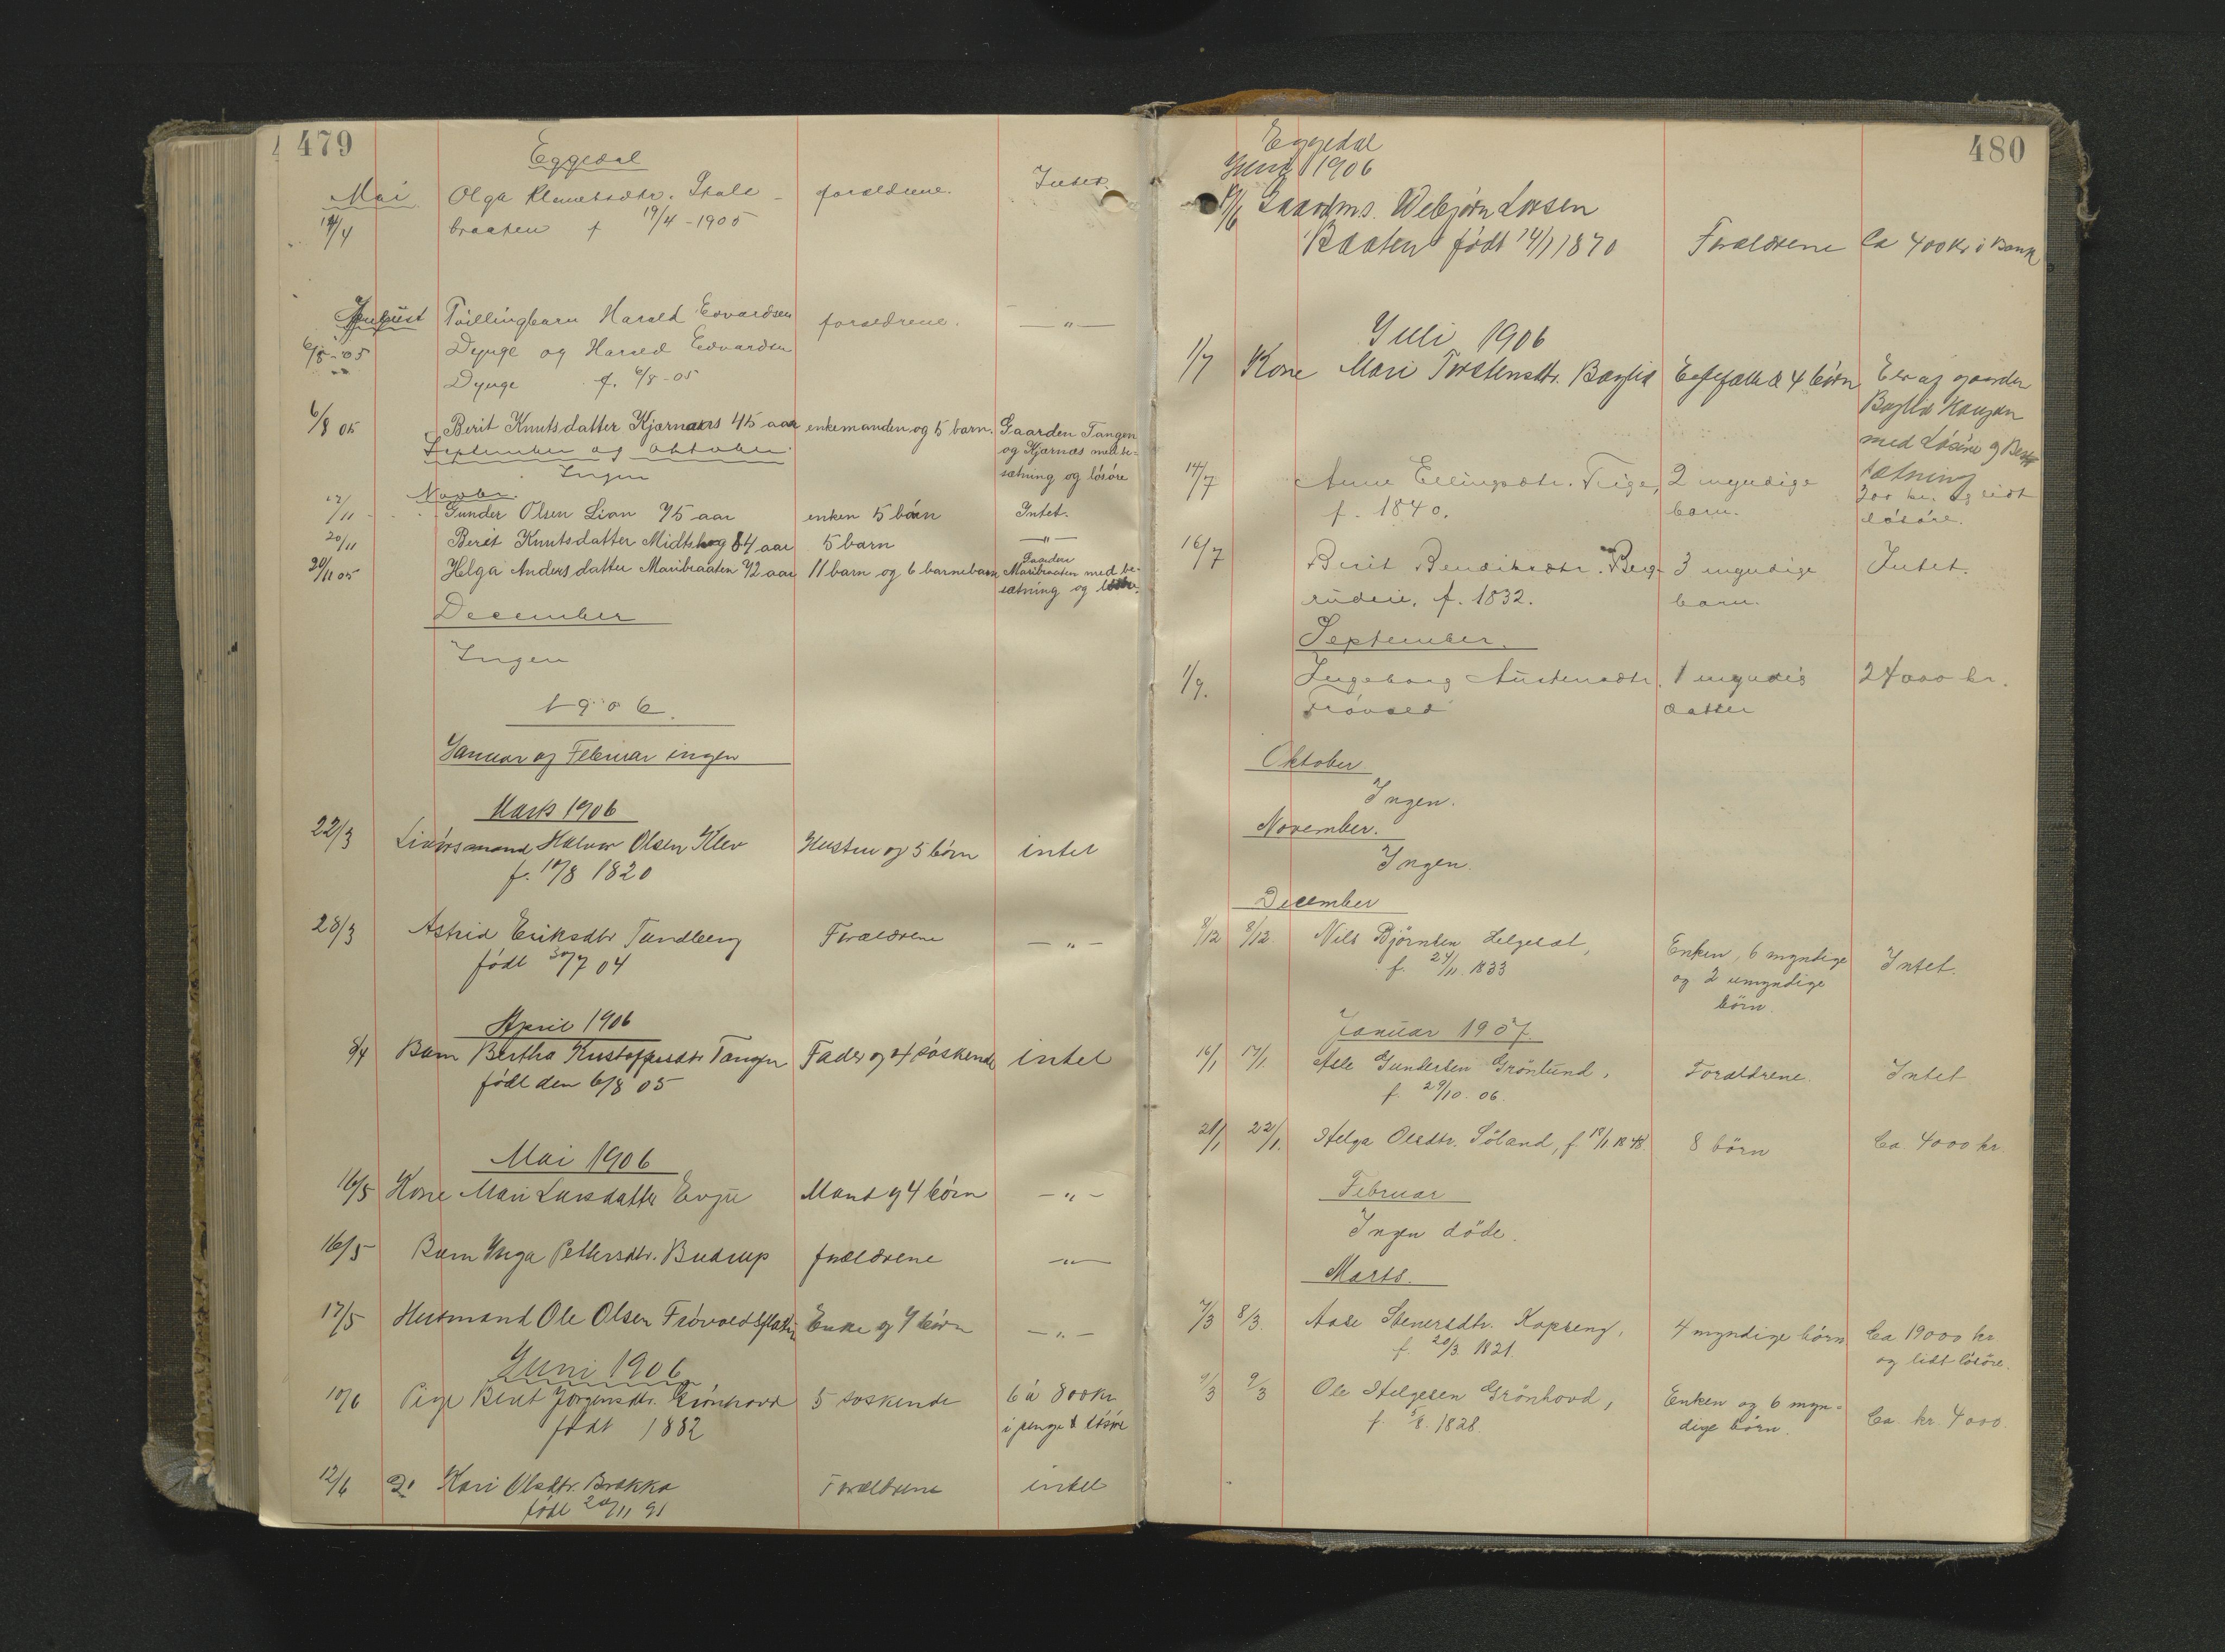 479
Eggedal
Mai Olga Klemetsdtr. Skale- forældrene. Intet.
19/4 braaten f 19/4-1905
August Tvillingbarn Harald Edvardsen forældrene. — " —
6/8-05 Dynge og Harald Edvardsen
Dynge f. 6/8-05
6/8 05 Berit Knutsdatter Kjørnaas 45 aar enkemanden og 5 barn. Gaarden Tangen
September og Oktober. og Kjørnæs med be-
Ingen sætning og løsøre
Novbr.
/11 Gunder Olsen Lian 75 aar enken 5 börn Intet.
20/11 Berit Knutsdatter Midtskog 84 aar 5 barn — " —
20/11 05 Helga Andersdatter Maribraaten 72 aar 11 barn og 6 barnebarn Gaarden
Maribraaten med be-
sætning og løsøre.
December
Ingen
1906.
Januar og Februar ingen
Marts 1906
22/3 Livørsmand Halvor Olsen Klev Hustru og 5 börn intet
f. 10/8 1820
28/3 Astrid Eriksdtr Tandberg Forældrene — " —
født 30/7 04
April 1906
8/4 Barn Bertha Kristoffersdtr Tangen Fader og 4 søskende intet
født den 6/8 05
Mai 1906
16/5 Kone Mari Larsdatter Evju Mand og 4 børn — " —
16/5 Barn Inga Pettersdtr. Budrup forældrene — " —
17/5 Husmand Ole Olsen Frövoldsflatin Enke og 4 börn — " —
Juni 1906
10/6 Pige Berit Jörgensdtr. Grönhovd 5 søskende 6 à 800 kr
født 1882 i penge & løsøre
12/6 Do Kari Olsdtr. Brokka Forældrene intet
født 20/11 91
480
Eggedal
Juni 1906
Gaardms. Vebjørn Larsen
Braaten født 14/1 1870 Forældrene Ca 400 kr i Bank
Juli 1906
1/7 Kone Mari Torstensdtr. Baglia Egtefælle & 4 børn Eier af gaarden
Baglia Haugen
med Løsøre og Be-
sætning
14/7 Anne Ellingsdtr. Teige, 2 myndige 300 kr. og lidt
f. 1840. barn. løsøre.
16/7 Berit Bendiksdtr. Berg- 3 myndige Intet.
rudeie. f. 1832. barn.
September.
1/9. Ingeborg Austensdtr. 1 myndig 24000 kr.
Frövold datter
Oktober
Ingen.
November.
Ingen.
December
8/12 8/12 Nils Björnsen Helgesæt, Enken, 6 myndige Intet.
f. 24/11. 1833 og 2 umyndige
börn.
Januar 1907.
16/1 17/1. Asle Gundersen Grönlund, Forældrene. Intet
f. 29/10. 06.
21/1 22/1. Helga Olsdtr. Söland, f. 18/11 1848. 8 börn Ca. 4000 kr.
Februar
Ingen döde.
Marts.
7/3 8/3. Aase Stenersdtr. Kopseng, 4 myndige börn Ca 19000 kr.
f. 20/3. 1821. og lidt lösöre.
9/3 9/3 Ole Helgesen Grönhovd, Enken og 6 myn- Ca. kr. 4000.
f. 5/8. 1828. dige börn.